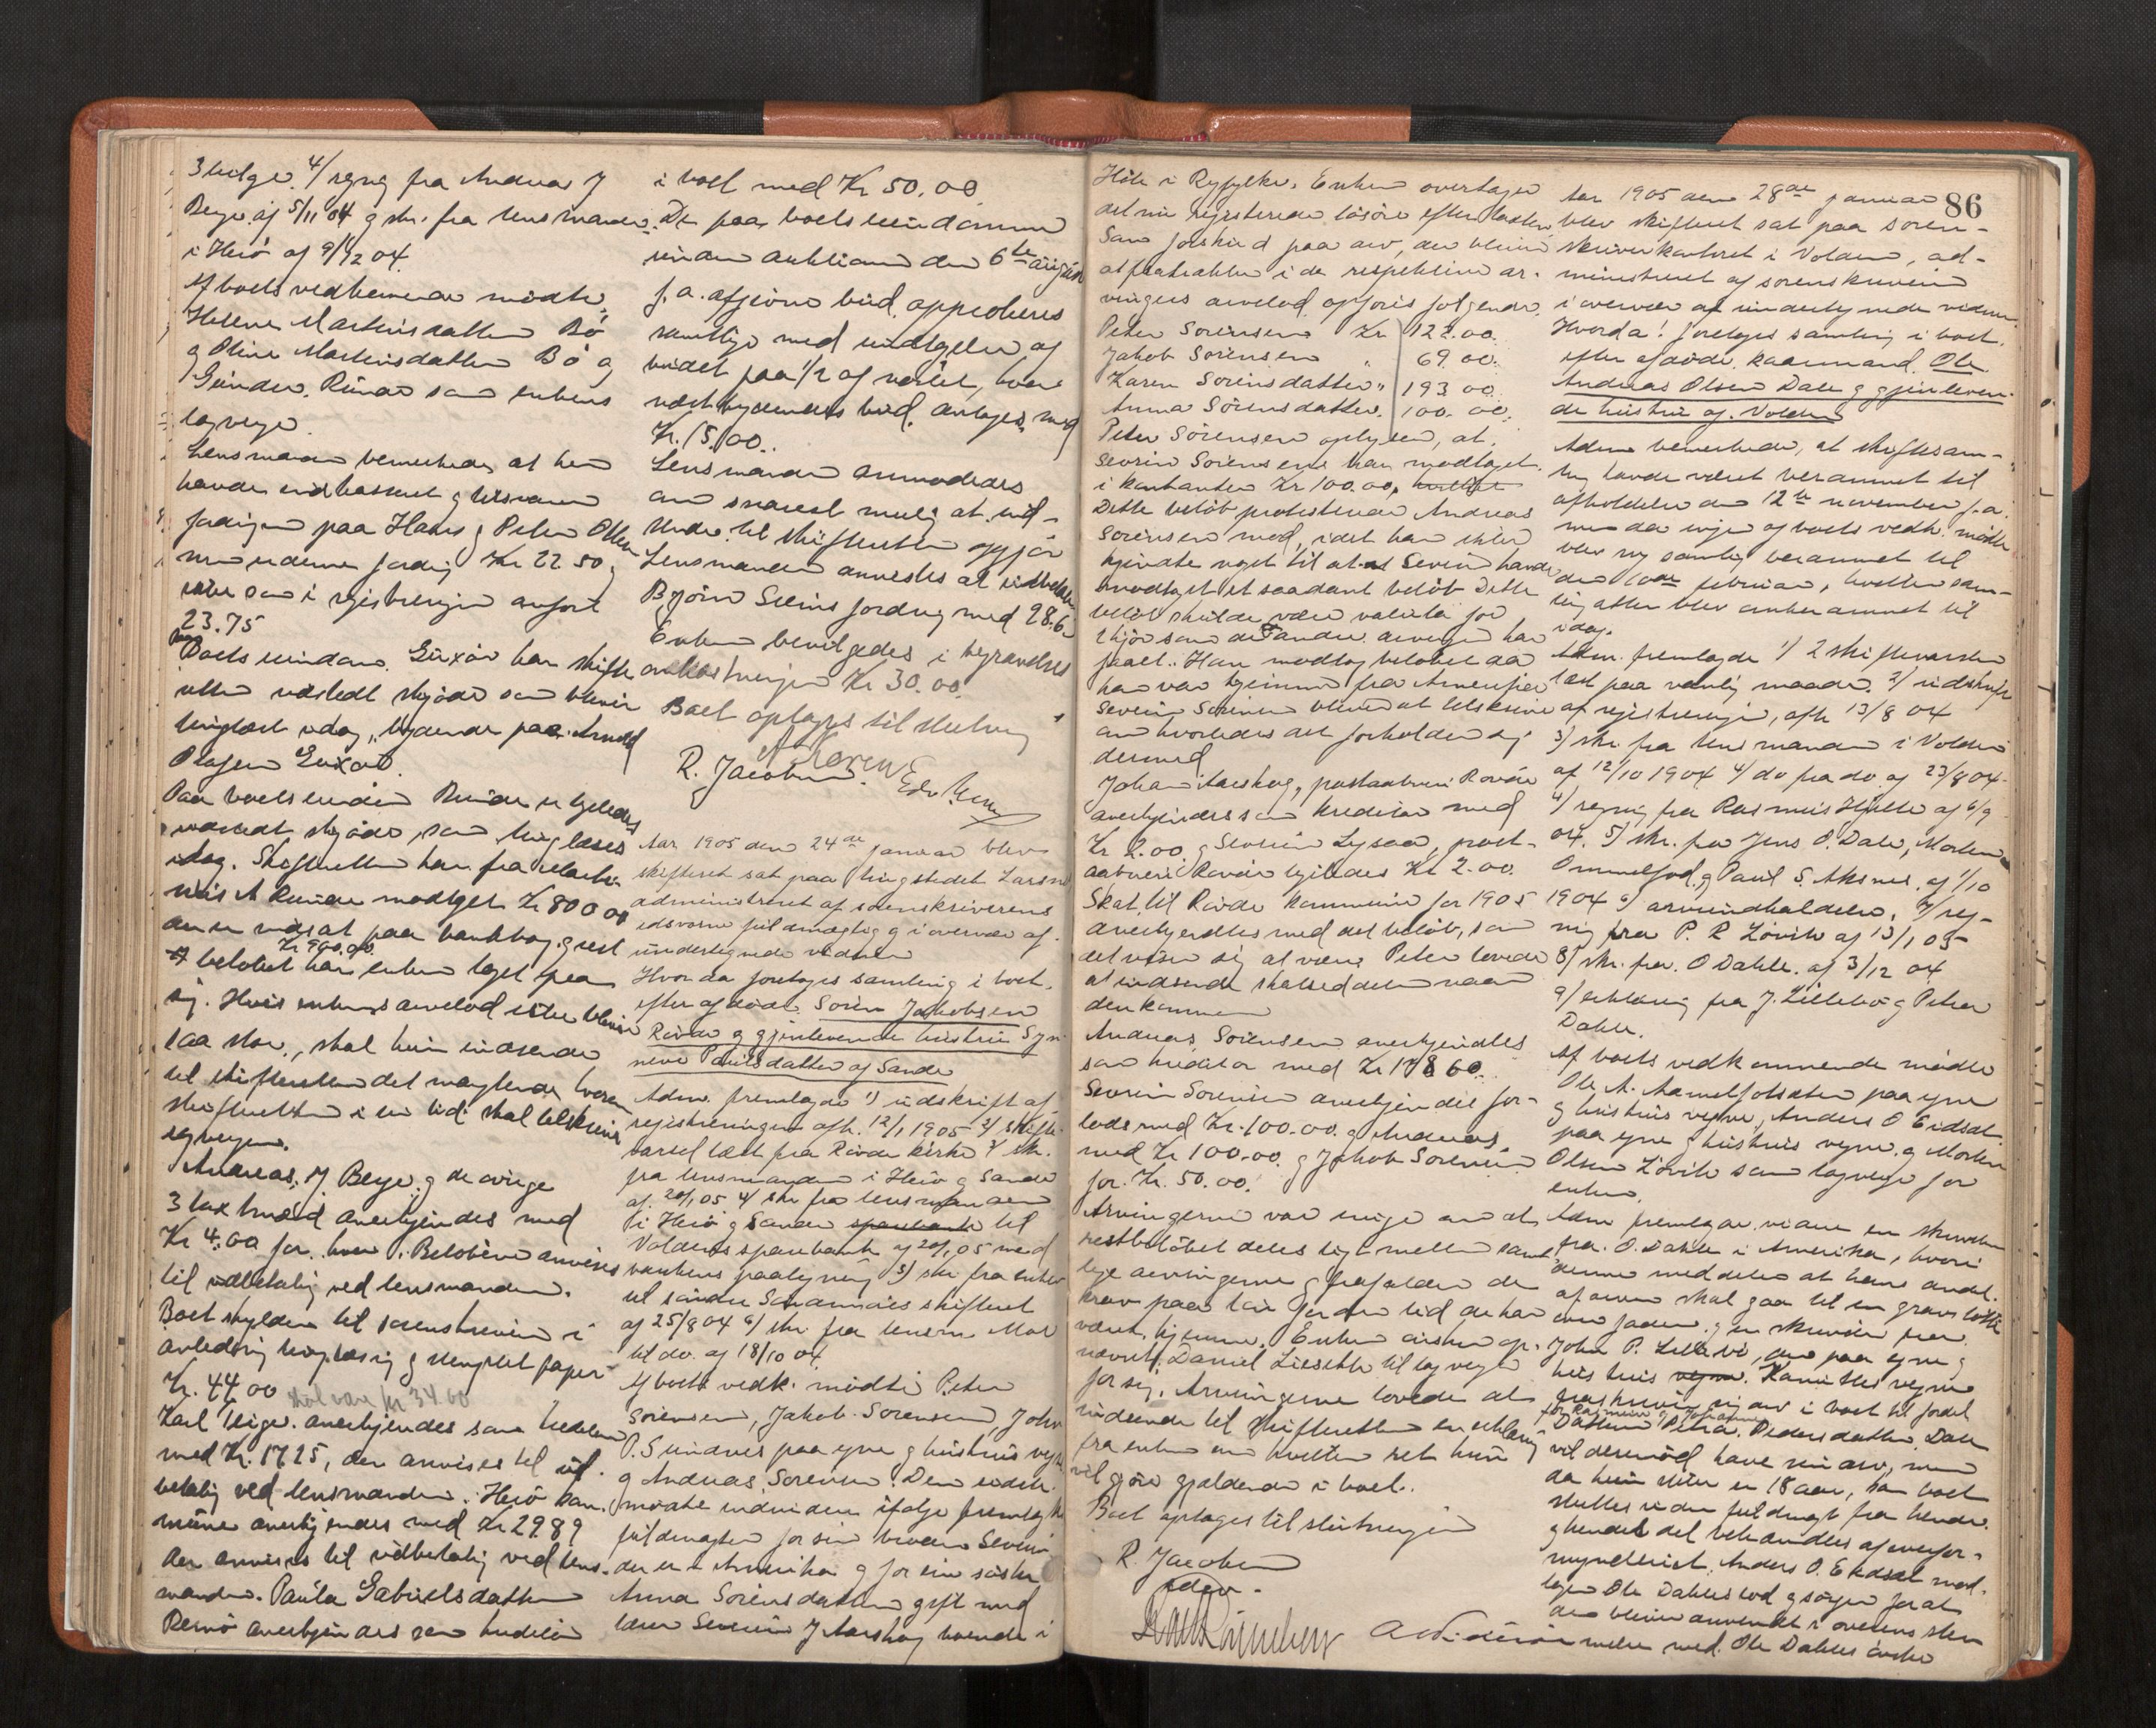 3 bilge. 4/ regng fra Andreas J
Berge af 5/11 04 g skr. fra lensmanden
i Herö af 9/12 04.
Af boets vedkommende mödte
Helene Martinsdatter Bö
g Oline Martinsdatter Bö og
Gunder Runde som enkens
lagverge.
Lensmanden bemerkede, at han
havde indkasseret
fordringen paa Hans g Peter Olsen
Kr 22 50,
som i registreringen anfört
23.75
Paa Boets eiendom Guxår har skifte
retten udstedt skjöde som bliver
tinglæst idag, lydende paa Arnold
Olafsen Guxår.
Paa boets eiendom Runde er ligeledes
udstedt skjöde, som tinglæses
idag. Skifteretten har fra
A Runde modtaget Kr 800 00
der er indsat paa bankbog. g rest
Kr 900,00
beløbet har enken taget paa
sig. Hvis enkens arvelod ikke bliver
saa stor, skal hun indsende
til skifteretten det manglende hvorom
skifteretten i sin tid skal tilskrive
lagvergen.
Andreas J Berge g de övrige
3 taxtmænd anerkjendes med
Kr 4.00 for hver. Belöbene anvises
til udbetaling ved lensmanden.
Boet skylder til sorenskriveren i
anledning tinglæsing g stemplet papir
Kr. 44 00 skal være kr 34.00
Karl Teige anerkjendes som kreditor
med Kr. 17 25, der anvises til ud-
betaling ved lensmanden. Herö kom-
mune anerkjendes med Kr 29 89
der anvises til udbetaling ved lens-
manden. Paula Gabrielsdatter
Remö anerkjendes som kreditor
i boet med Kr 50,00
De paa boets eiendomme
under auktionen den 6te
f.a. afgivne bud approberes
samtlige med undtagelse af
budet paa 1/2 af , hvor
næstbydendes bud antages med
Kr. 15.00.
Lensmanden anmodedes
om snarest mulig at ind-
sende til skifteretten opgjör
Lensmanden anvistes at udbetale
Björn fordring med 28.6
Enken bevilgedes i begravelses
omkostninger Kr 30.00.
Boet optages til slutning
A Koren
R. Jacobsen Edv.
Aar 1905 den 24de januar blev
skifteret sat paa tingstedet Larsnes
administreret af sorenskriverens
edsvorne fuldmægtig g i overvær af
undertegnede vidner
Hvor da foretoges samling i boet
efter afdöde Sören Jakobsen
Rövde g gjenlevende hustru Syn-
neve Paulsdatter af Sande
Adm. fremlagde 1) udskrift af
registreringen afh. 12/1 1905 2/ skifte
varsel læst fra Rövde kirke 3/ skr.
fra lensmanden i Herö g Sande
af 20/1 05 4/ skr fra lensmanden
i Herö g Sande sparebank til
Voldens sparebank af 20/1 05 med
bankens paategning 5) skr fra enken
til söndre Söndmöres skifteret
af 25/8 04 6/ skr fra lensm
til do. af 18/10 04.
Af boets vedk. mödte Peter
Sörensen, Jakob Sörensen, John
P. Sundnes paa egne g hustrus vegne
g Andreas Sörensen. Den sidste
mödte endvidere ifölge fremlagt
fuldmagter for sin broder Severin
der er i Amerika g for sin söster
Anna Sörensdatter gift med
lærer Severin J Aarskog boende i
86
Hele i Ryfylke. Enken overtager
det nu registrerede lösöre efter taxten
Som forskud paa arv, der bliver
at fratrække i de respektive ar-
vingers arvelod opföres fölgende
Peter Sörensen Kr 122.00.
Jakob Sörensen " 69 00.
Karen Sörensdatter " 193 00.
Anna Sörensdatter. 100.00.
Peter Sörensen oplyser, at
Severin Sörensen har modtaget
i kontanter Kr 100.00,
Dette belöb protesterede Andreas
Sörensen mod, idet han ikke
kjendte noget til at Severin havde
modtaget et saadant belöb Dette
belöb skulde være valuta for
som de andre arvinger har
faaet. Han modtog belöbet da
han var hjemme fra Amerika
Severin Sörensen bliver at tilskrive
om hvorledes det forholder sig
dermed
Johan Aarskog, postaabneri Rövde
anerkjendes som kreditor med
Kr 2.00 g Severin Lysaa, post-
aabneri Rövde ligeledes Kr 2.00.
Skat til Rövde kommune for 1905
anerkjendtes med det belöb, som
det viser sig at være Peter lovede
at indsende skatseddelen naar
den kommer
Andreas Sörensen anerkjendtes
som kreditor med Kr 178 60.
Severin Sörensen anerkjendtes for-
lods med Kr. 100.00. g Andreas
med Kr 100.00 g Jakob Sörensen
for Kr. 50.00.
Arvingerne var enige om at
restbelöbet deles ligt mellem samt-
lige arvingerne g frafalder de
krav paa lön for den tid de har
været hjemme. Enken önsker op-
nævnt Daniel Liesetter til lagverge
for sig. Arvingerne lovede at
indsende til skifteretten en erklæring
fra enken om hvilken ret hun
vil gjöre gjældende i boet.
Boet optages til slutningen
R. Jacobsen
edsv.
Aar 1905 den 28de januar
blev skifteret sat paa soren-
skriverkontoret i Volden, ad-
ministreret af sorenskriveren
i overvær af undertegnede vidner.
Hvorda! foretoges samling i boet
efter afdöde kaarmand Ole
Andreas Olsen Dale g gjenleven-
de hustru af Volden
Adm bemerkede, at skiftesam-
ling havde været berammet til
afholdelse den 12te november f.a.
men da ingen af boets vedk. mödte
blev ny samling berammet til
den 10de februar, hvilken sam-
ling atter blev omberammet til
idag.
Adm. fremlagde 1) 2 skiftevarsler
læst paa vanlig maade. 2/ udskrift
af registreringen, afh 13/8 04
3) skr. fra lensmanden i Volden
af 12/10 1904 4/ do fra do af 23/8 04.
4) regning fra Rasmus af 6/9
04. 5) skr. fra Jens O. Dale, Morten
g Paul S. Aksnes af 1/10
1904 6/ arveindkaldelse. 7/ reg-
ning fra P. R Lövik af 13/1 05
8) skr. fra O Dahle af 3/12 04
9/ erklæring fra J. Lillebö g Petra
Dahle.
Af boets vedkommende mödte
Ole A. Aamelfotsæter paa egne
g hustrus vegne, Anders O Eidset
paa egne g hustrus vegne g Morten
Olsen Lövik som lagverge for
enken.
Adm fremlagde videre en skrivelse
fra O. Dahle i Amerika, hvori
denne meddeler at hans andel
af arven skal gaa til en gravstötte
over faderen g en skrivelse fra
John P. Lillebö, der paa egne g
hustrus vegne Kamillas vegne
fraskriver sig arv i boet til fordel
for Rasmine g Johanne
Datteren Petra Pedersdatter Dale
vil derimod have sin arv, men
da hun ikke er 18 aar, kan boet
sluttes uden fuldmagt fra hende
g hendes del behandles af overfor-
mynderiet. Anders O. Eidset mod-
tager Ole Dahles lod g sörger for at
den bliver anvendt i overensstem-
melse med Ole Dahles önske